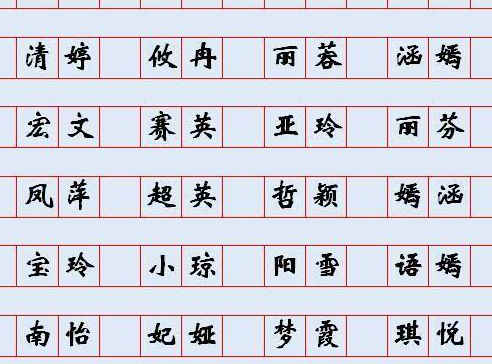 清婷 攸冉 丽蓉 涵嫣
宏文 赛英 亚玲 丽芬
凤萍 超英 哲颖 嫣涵
宝玲 小琼 阳雪 语嫣
南怡 妃娅 梦霞 琪悦